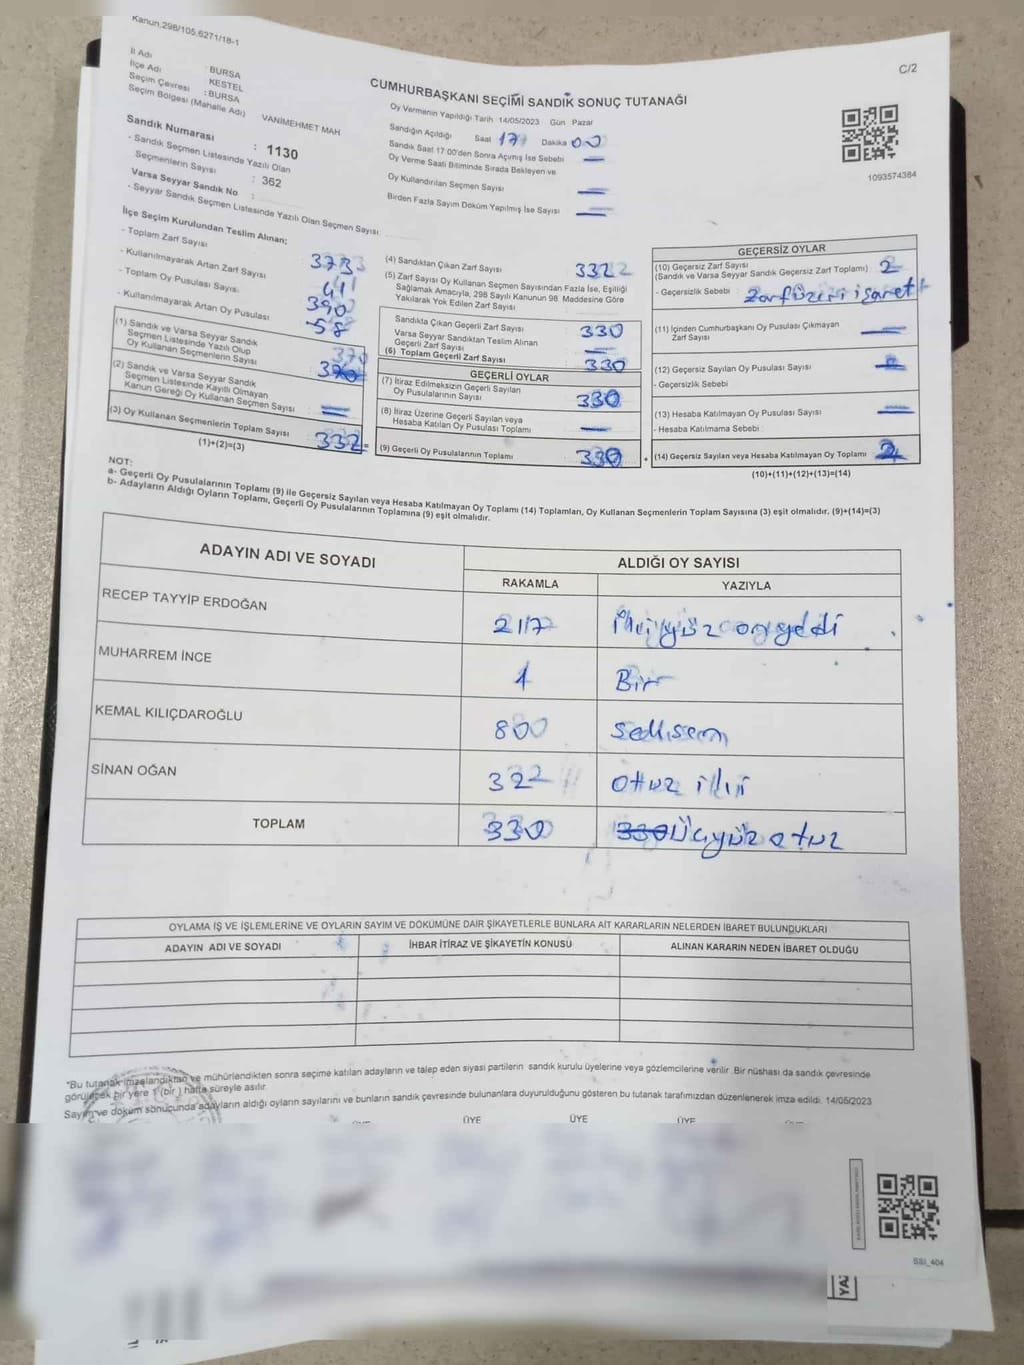 Kanun.298/105,6271/18-1
C/2
İl Adı : BURSA
İlçe Adı : KESTEL
Seçim Çevresi : BURSA
Seçim Bölgesi (Mahalle Adı) VANİMEHMET MAH
Sandık Numarası : 1130
- Sandık Seçmen Listesinde Yazılı Olan
Seçmenlerin Sayısı : 362
Varsa Seyyar Sandık No :
- Seyyar Sandık Seçmen Listesinde Yazılı Olan Seçmen Sayısı
CUMHURBAŞKANI SEÇİMİ SANDIK SONUÇ TUTANAĞI
Oy Vermenin Yapıldığı Tarih 14/05/2023 Gün Pazar
Sandığın Açıldığı Saat 17 Dakika 00
Sandık Saat 17:00'den Sonra Açımış İse Sebebi —
Oy Verme Saati Bitiminde Sırada Bekleyen ve
Oy Kullandırılan Seçmen Sayısı —
Birden Fazla Sayım Döküm Yapılmış İse Sayısı —
1093574384
İlçe Seçim Kurulundan Teslim Alınan;
- Toplam Zarf Sayısı 373
- Kullanılmayarak Artan Zarf Sayısı 41
- Toplam Oy Pusulası Sayısı 390
- Kullanılmayarak Artan Oy Pusulası 58
(1) Sandık ve Varsa Seyyar Sandık
Seçmen Listesinde Yazılı Olup
Oy Kullanan Seçmenlerin Sayısı
(2) Sandık ve Varsa Seyyar Sandık
Seçmen Listesinde Kayıtlı Olmayan
Kanun Gereği Oy Kullanan Seçmen Sayısı —
(3) Oy Kullanan Seçmenlerin Toplam Sayısı 332
(1)+(2)=(3)
(4) Sandıktan Çıkan Zarf Sayısı 332
(5) Zarf Sayısı Oy Kullanan Seçmen Sayısından Fazla İse, Eşitliği
Sağlamak Amacıyla, 298 Sayılı Kanunun 98. Maddesine Göre
Yakılarak Yok Edilen Zarf Sayısı
Sandıkta Çıkan Geçerli Zarf Sayısı 330
Varsa Seyyar Sandıktan Teslim Alınan
Geçerli Zarf Sayısı —
(6) Toplam Geçerli Zarf Sayısı 330
GEÇERLİ OYLAR
(7) İtiraz Edilmeksizin Geçerli Sayılan
Oy Pusulalarının Sayısı 330
(8) İtiraz Üzerine Geçerli Sayılan veya
Hesaba Katılan Oy Pusulası Toplamı —
(9) Geçerli Oy Pusulalarının Toplamı 330
GEÇERSİZ OYLAR
(10) Geçersiz Zarf Sayısı 2
(Sandık ve Varsa Seyyar Sandık Geçersiz Zarf Toplamı)
- Geçersizlik Sebebi Zarf üzeri işaret
(11) İçinden Cumhurbaşkanı Oy Pusulası Çıkmayan
Zarf Sayısı —
(12) Geçersiz Sayılan Oy Pusulası Sayısı
- Geçersizlik Sebebi
(13) Hesaba Katılmayan Oy Pusulası Sayısı —
- Hesaba Katılmama Sebebi
(14) Geçersiz Sayılan veya Hesaba Katılmayan Oy Toplamı 2
(10)+(11)+(12)+(13)=(14)
NOT:
a- Geçerli Oy Pusulalarının Toplamı (9) ile Geçersiz Sayılan veya Hesaba Katılmayan Oy Toplamı (14) Toplamları, Oy Kullanan Seçmenlerin Toplam Sayısına (3) eşit olmalıdır. (9)+(14)=(3)
b- Adayların Aldığı Oyların Toplamı, Geçerli Oy Pusulalarının Toplamına (9) eşit olmalıdır.
ADAYIN ADI VE SOYADI
ALDIĞI OY SAYISI
RAKAMLA YAZIYLA
RECEP TAYYİP ERDOĞAN 217 ikiyüz onyedi
MUHARREM İNCE 1 Bir
KEMAL KILIÇDAROĞLU 80 seksen
SİNAN OĞAN 32 otuz iki
TOPLAM 330 330 üçyüz otuz
OYLAMA İŞ VE İŞLEMLERİNE VE OYLARIN SAYIM VE DÖKÜMÜNE DAİR ŞİKAYETLERLE BUNLARA AİT KARARLARIN NELERDEN İBARET BULUNDUKLARI
ADAYIN ADI VE SOYADI İHBAR İTİRAZ VE ŞİKAYETİN KONUSU ALINAN KARARIN NEDEN İBARET OLDUĞU
*Bu tutanak imzalandıktan ve mühürlendikten sonra seçime katılan adayların ve talep eden siyasi partilerin sandık kurulu üyelerine veya gözlemcilerine verilir. Bir nüshası da sandık çevresinde
görülecek bir yere 1 (bir) hafta süreyle asılır.
Sayım ve döküm sonucunda adayların aldığı oyların sayılarını ve bunların sandık çevresinde bulunanlara duyurulduğunu gösteren bu tutanak tarafımızdan düzenlenerek imza edildi. 14/05/2023
ÜYE ÜYE ÜYE ÜYE
SSI_404
YAZ